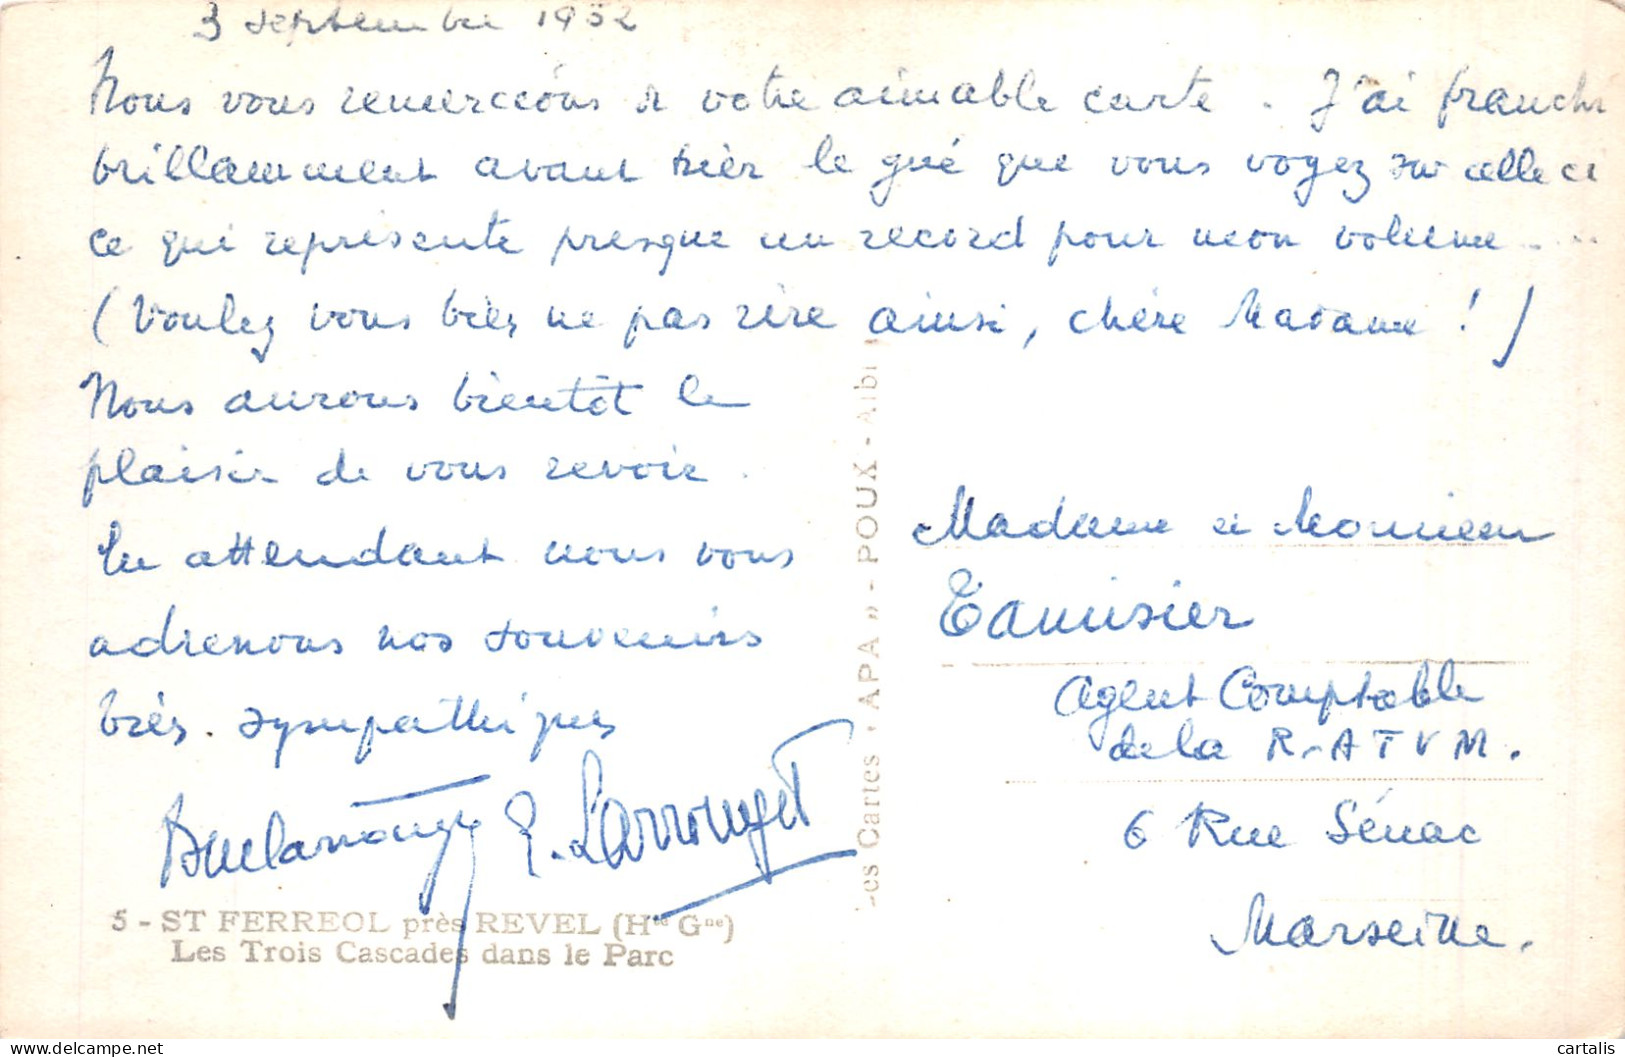 3 septembre 1952
Nous vous remercions de votre aimable carte. J'ai franchi
brillamment avant hier le gué que vous voyez sur celle ci
ce qui représente presque un record pour mon volume ....
(Voulez vous bien ne pas rire ainsi, chère Madame ! )
Nous aurons bientôt le
plaisir de vous revoir.
En attendant nous vous
adressons nos souvenirs
très sympathiques
E. Larrouget
5 - ST FERREOL près REVEL (Hte Gne)
Les Trois Cascades dans le Parc
Les Cartes « APA » - POUX - Albi
Madame et Monsieur
Tamisier
Agent Comptable
de la R.ATVM.
6 Rue Sénac
Marseille.
cartalis